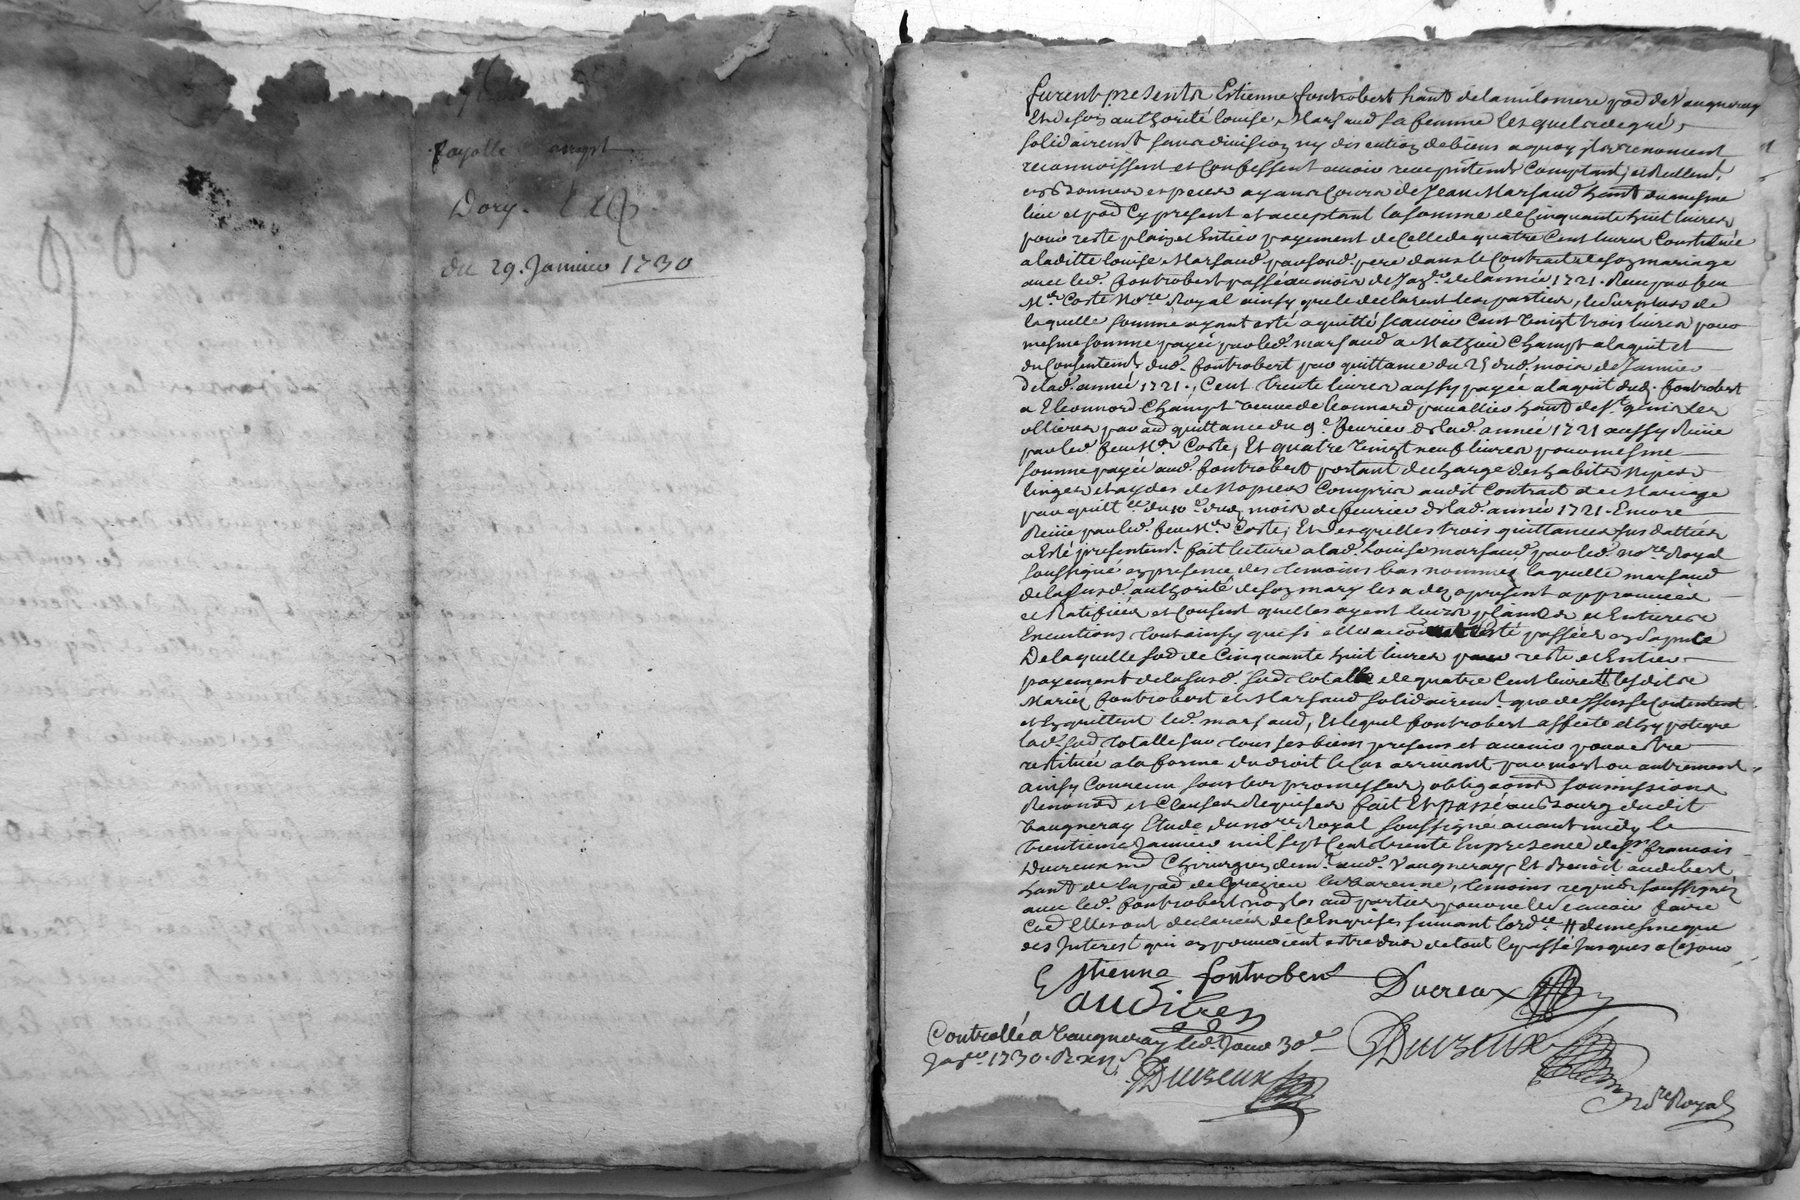 fayolle
Dory.
du 29. Janvier 1730
furent presents Estienne fontrobert habt de la miloniere parr de Vaugneray
Et de son authorité louise Marsaud sa femme lesquels de gré,
solidairemt sans division ny discution de biens a quoy ils renoncent
reconnoissent et Confessent avoir receu presentemt Comptant, et Reellemt
en bonnes especes ayans Cours de Jean Marsaud habt du mesme
lieu et parr Cy present et acceptant la somme de Cinquante huit livres
pour reste plain et Entier payement de Celle de quatre Cent livres Constituée
a laditte louise Marsaud par sond. pere dans le Contrait de son mariage
avec led. fontrobert passé au mois de Janr de l'année 1721. Receu par feu
Me Coste Nore Royal ainsy que le declarent les parties, le surplus de
laquelle somme ayant esté aquitté scavoir Cent vingt trois livres pour
mesme somme payée par led. marsaud a Mathieu Champt a l'aquit et
du Consentemt dud. fontrobert par quittance du 25 dud. mois de Janvier
de lad. année 1721., Cent trente livres aussy payée a l'aquit dud. fontrobert
a Eleonnord Champt veuve de leonnard pavallier habt de St genis les
ollieres par aud quittance du 9e fevrier de lad. année 1721 aussy Reçue
par led. feu Me Coste, Et quatre vingt neuf livres pour mesme
somme payée aud. fontrobert portant decharge des habits nipies
linges et aydes de Nopces Compris audit Contrait de Mariage
par quittce du 10e dud. mois de fevrier de lad. année 1721. Encore
Reçue par led. feu Me Coste, Et desquelles trois quittances sus dattées
a Esté presentemt fait lecture a lad. Louise marsaud par led. nore Royal
soussigné en presence des temoins bas nommes laquelle marsaud
de la susd. authorité de son mary les a dez a present approuvées
et Ratifiées et Consent quelles ayent leurs plaines et Entieres
Executions tout ainsy que si elle avoit esté passées en sa pnce
De laquelle sod. de Cinquante huit livres pour reste et Entier
payement de la susd. sod. totalle de quatre Cent livres # lesdits
Mariés fontrobert et Marsaud solidairemt que dessus se Contentent
et En quittent led. marsaud, Et lequel fontrobert affecte et hypoteque
lad. sod. totalle sur tous ses biens presens et avenir pour estre
restituée a la forme du droit le Cas arrivant par mort ou autrement,
ainsy Convenu sous leur promesses, obligaons soumissions
Renonaons et Clauses Requises fait Et passé au bourg dudit
Vaugneray Etude du nore Royal soussigné avant midy le
trentieme Janvier mil sept Cent trente En presence de sr francois
Ducreux md Chirurgien demt aud. Vaugneray, Et Benoît audibert
habt de la parr de Grezieu la Varenne, temoins requis soussignés
avec led. fontrobert non les aud parties pour ne le scavoir faire
Co. Elles ont declarées de Ce Enquises suivant l'ordce # de mesme que
des Interest qui en pouvoient estre dues de tout le passé Jusques a Ce jour
Estienne fontrobert Ducreux
audiber
Controllé a Vaugneray led. Jour 30e
Janr 1730. R xij s.
Ducreux
Ducreux
Nore Royal